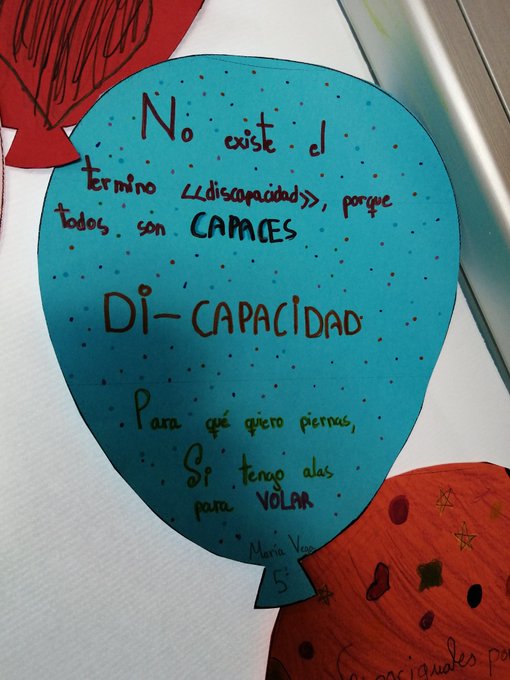 No existe el
termino <<discapacidad>>, porque
todos son CAPACES
Di-CAPACiDAD.
Para qué quiero piernas,
Si tengo alas
para VOLAR
María Vega
5º
iguales